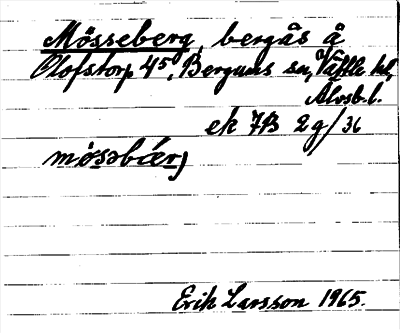 Mösseberg, bergås å
Olofstorp 4⁵, Bergums sn, Vättle hd,
Älvsb.l.
ek 7B 2g/36
Erik Larsson 1965.